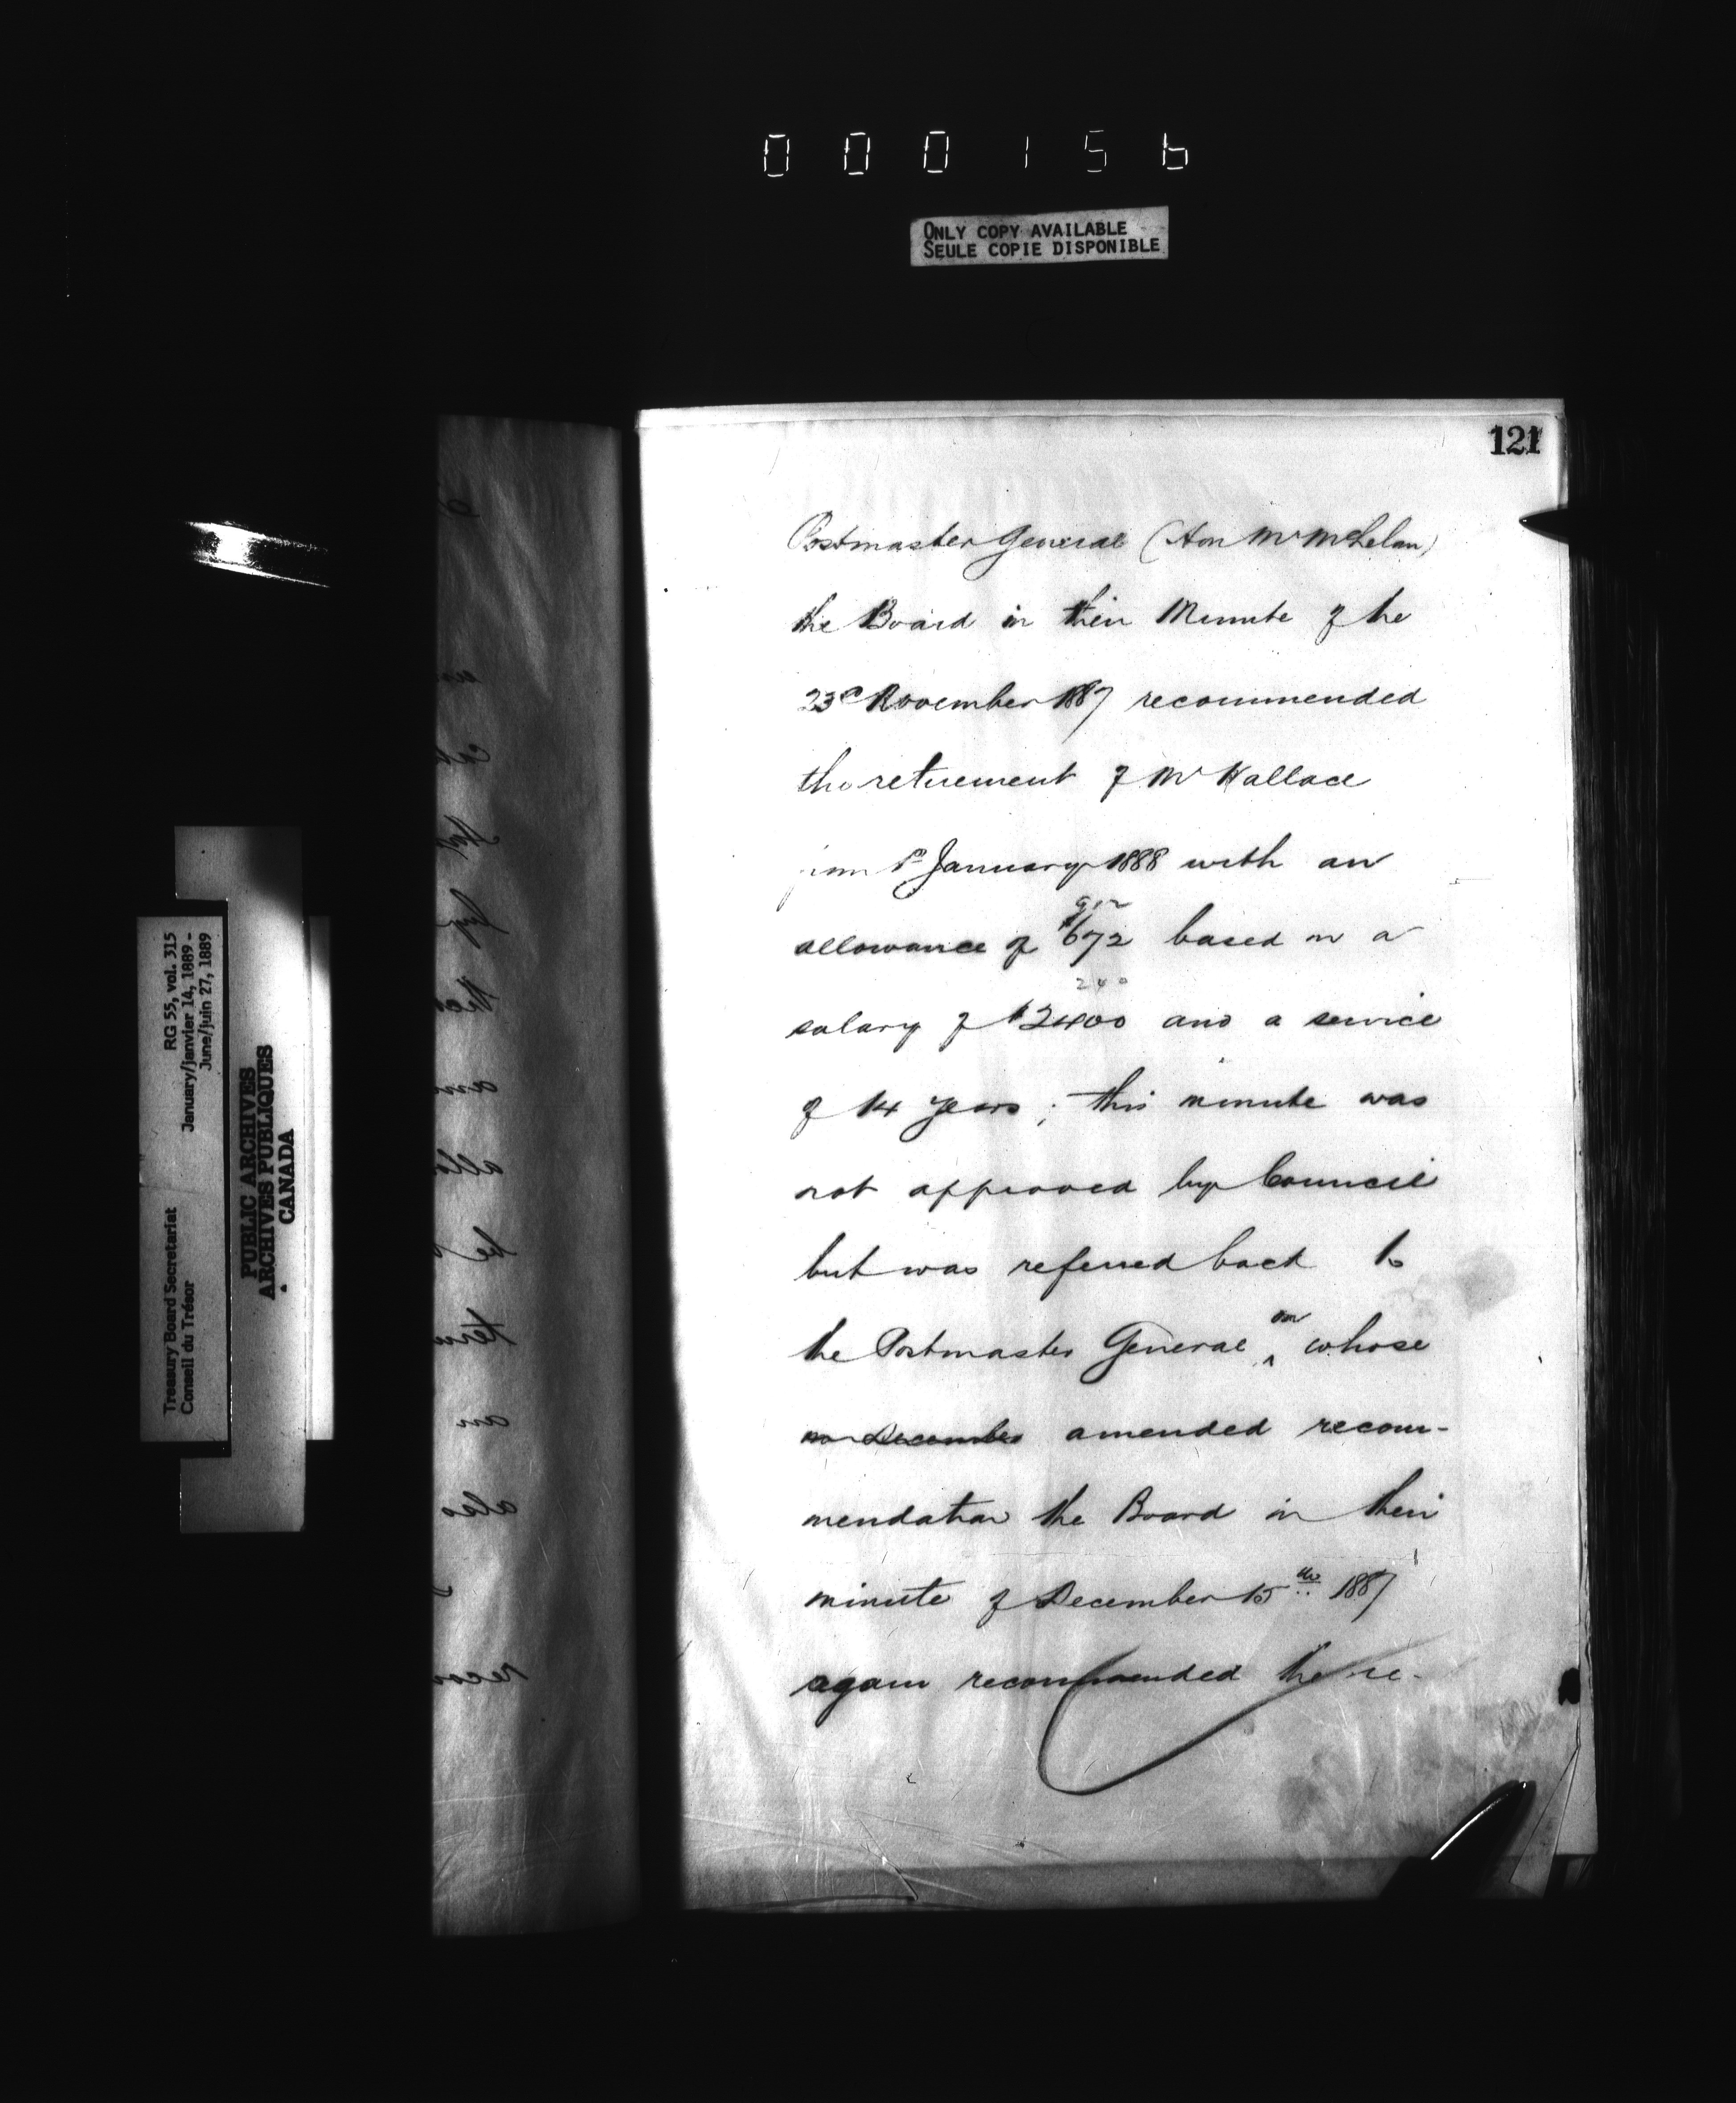 000156
ONLY COPY AVAILABLE
SEULE COPIE DISPONIBLE
121
Postmaster General (Hon Mr McLelan)
the Board in their Minute of the
23d November 1887 recommended
the retirement of Mr Wallace
from 1st January 1888 with an
allowance of $672 based on a
240
salary of $2400 and a service
of 14 years; this minute was
not approved by Council
but was referred back to
the Postmaster General ‸ on whose
on December amended recom-
mendation the Board in their
minute of December 15th 1887
again recommended the re-
RG 55, vol. 315
January/janvier 14, 1889 -
June/juin 27, 1889
Treasury Board Secretariat
Conseil du Trésor
PUBLIC ARCHIVES
ARCHIVES PUBLIQUES
CANADA